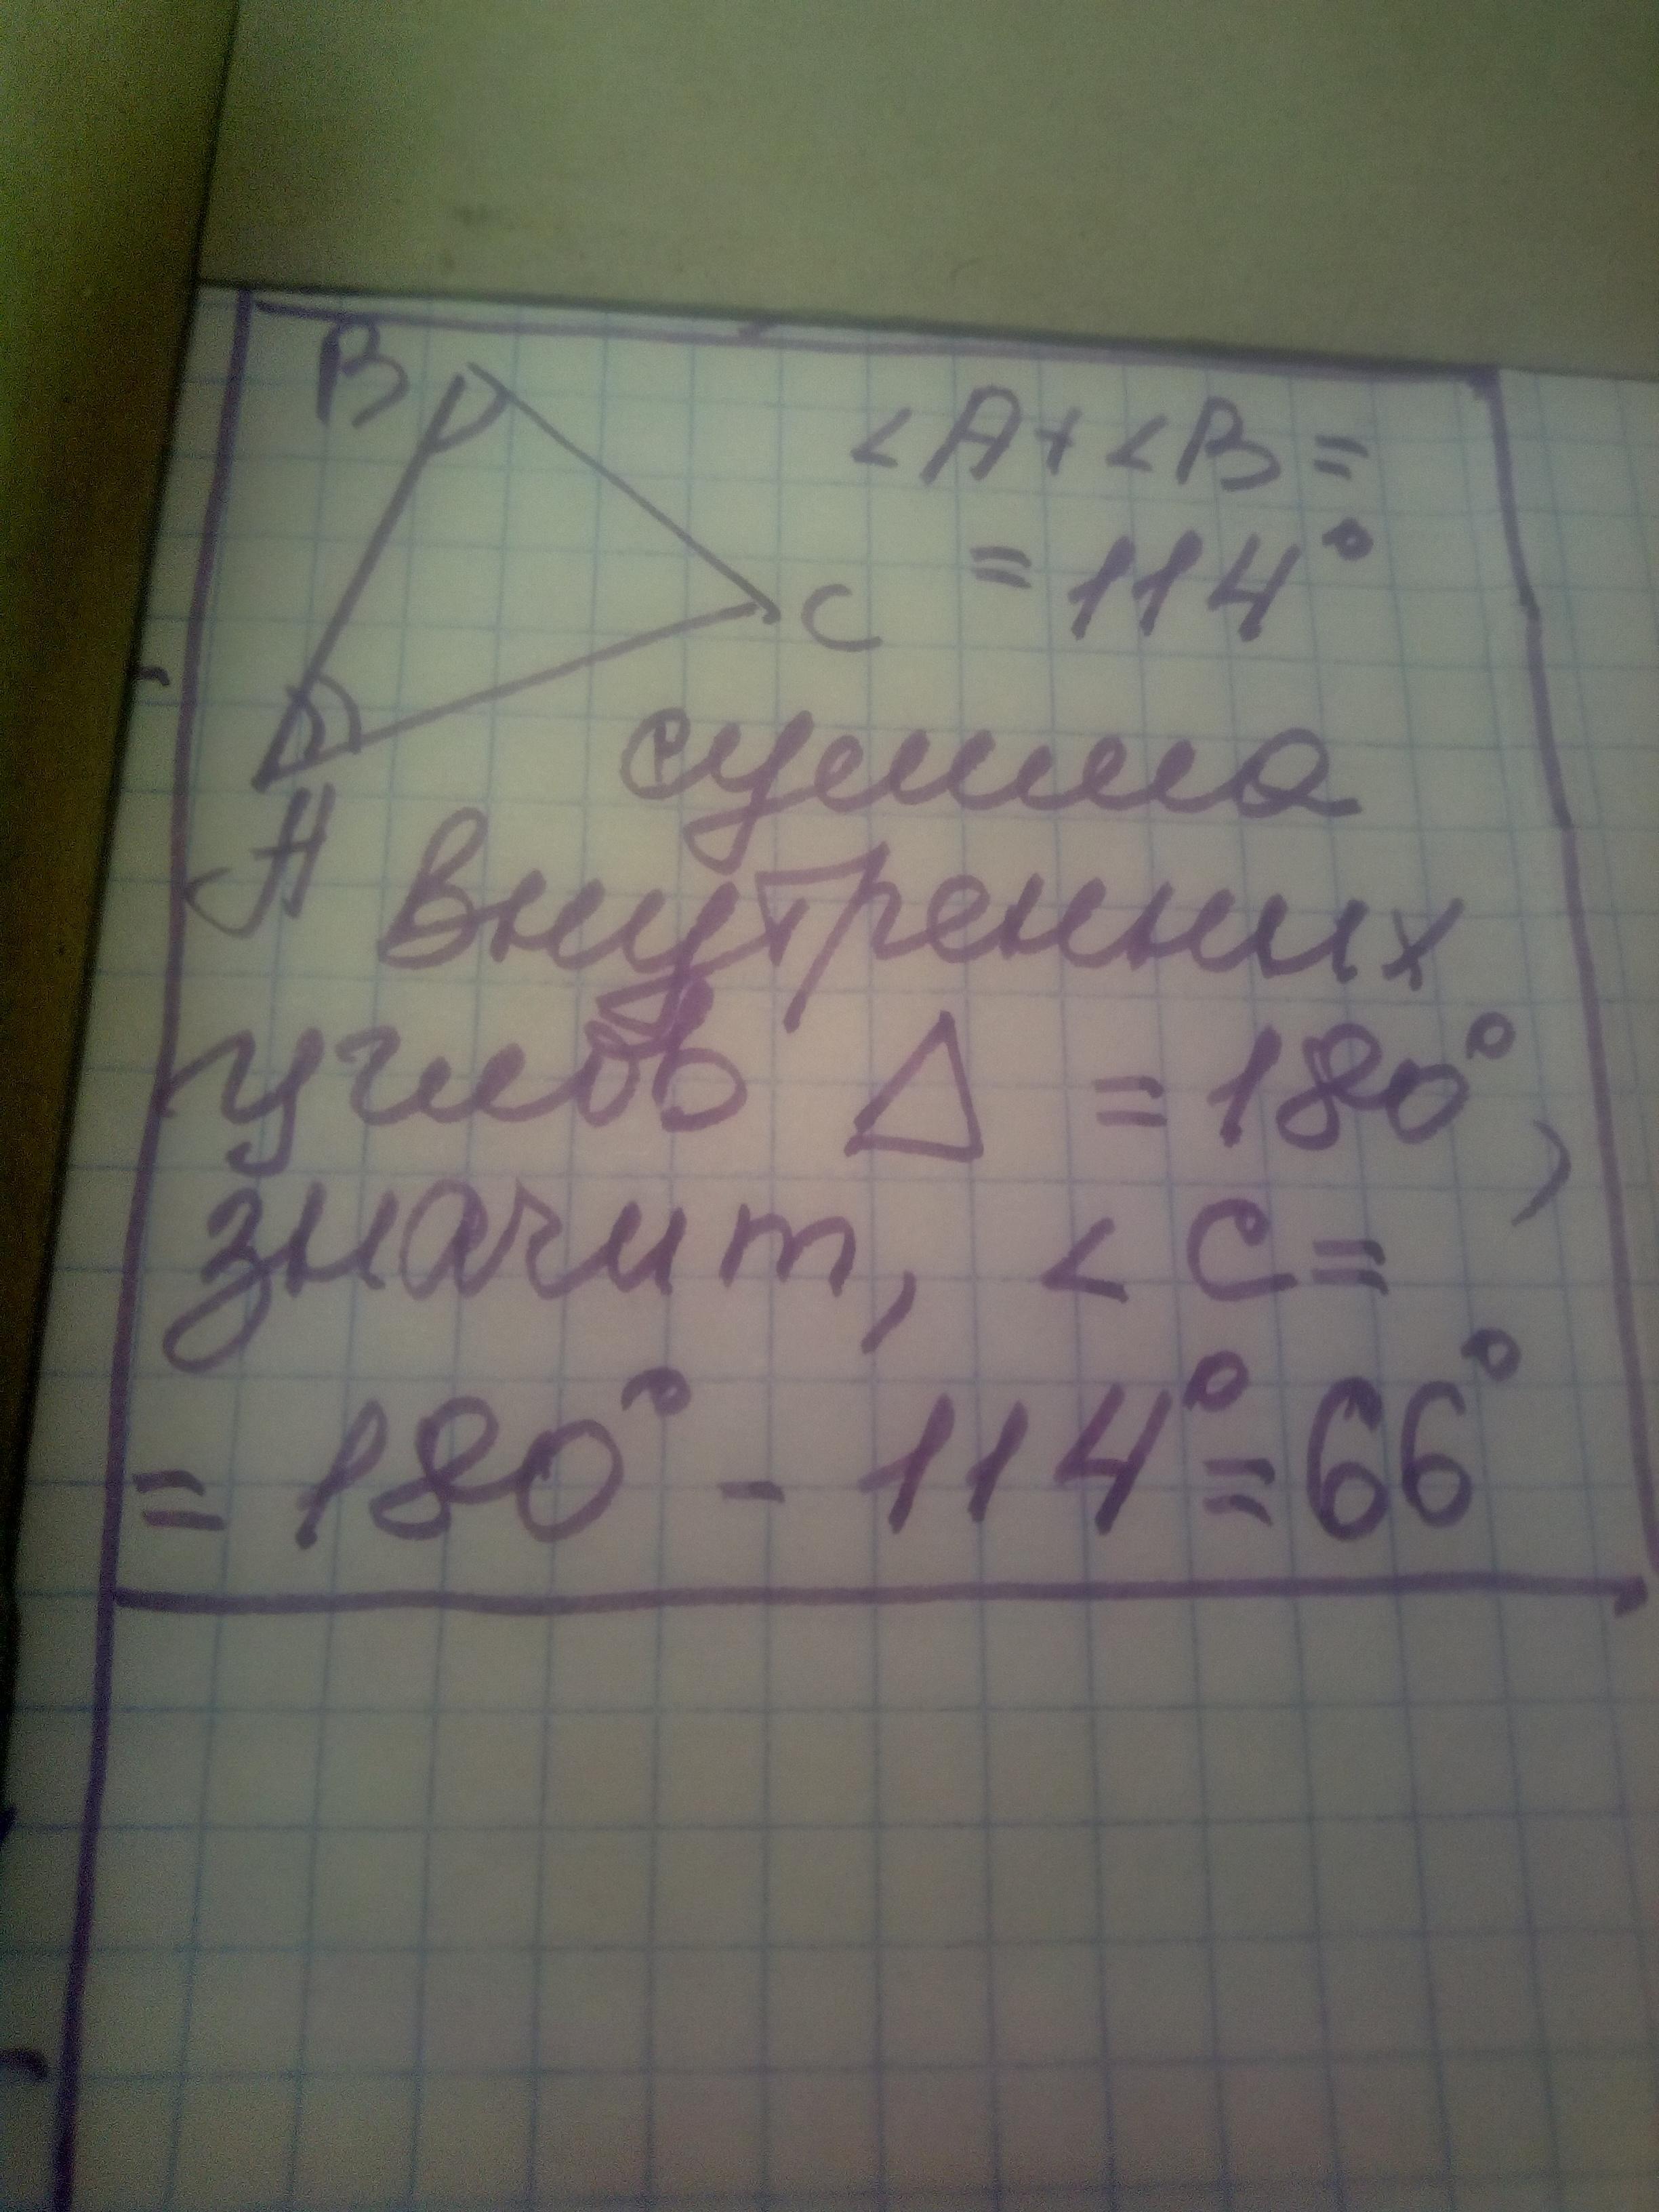 B
∠A + ∠B =
= 114°
C
A
сумма
внутренних
углов Δ = 180°,
значит, ∠C =
= 180° - 114° = 66°